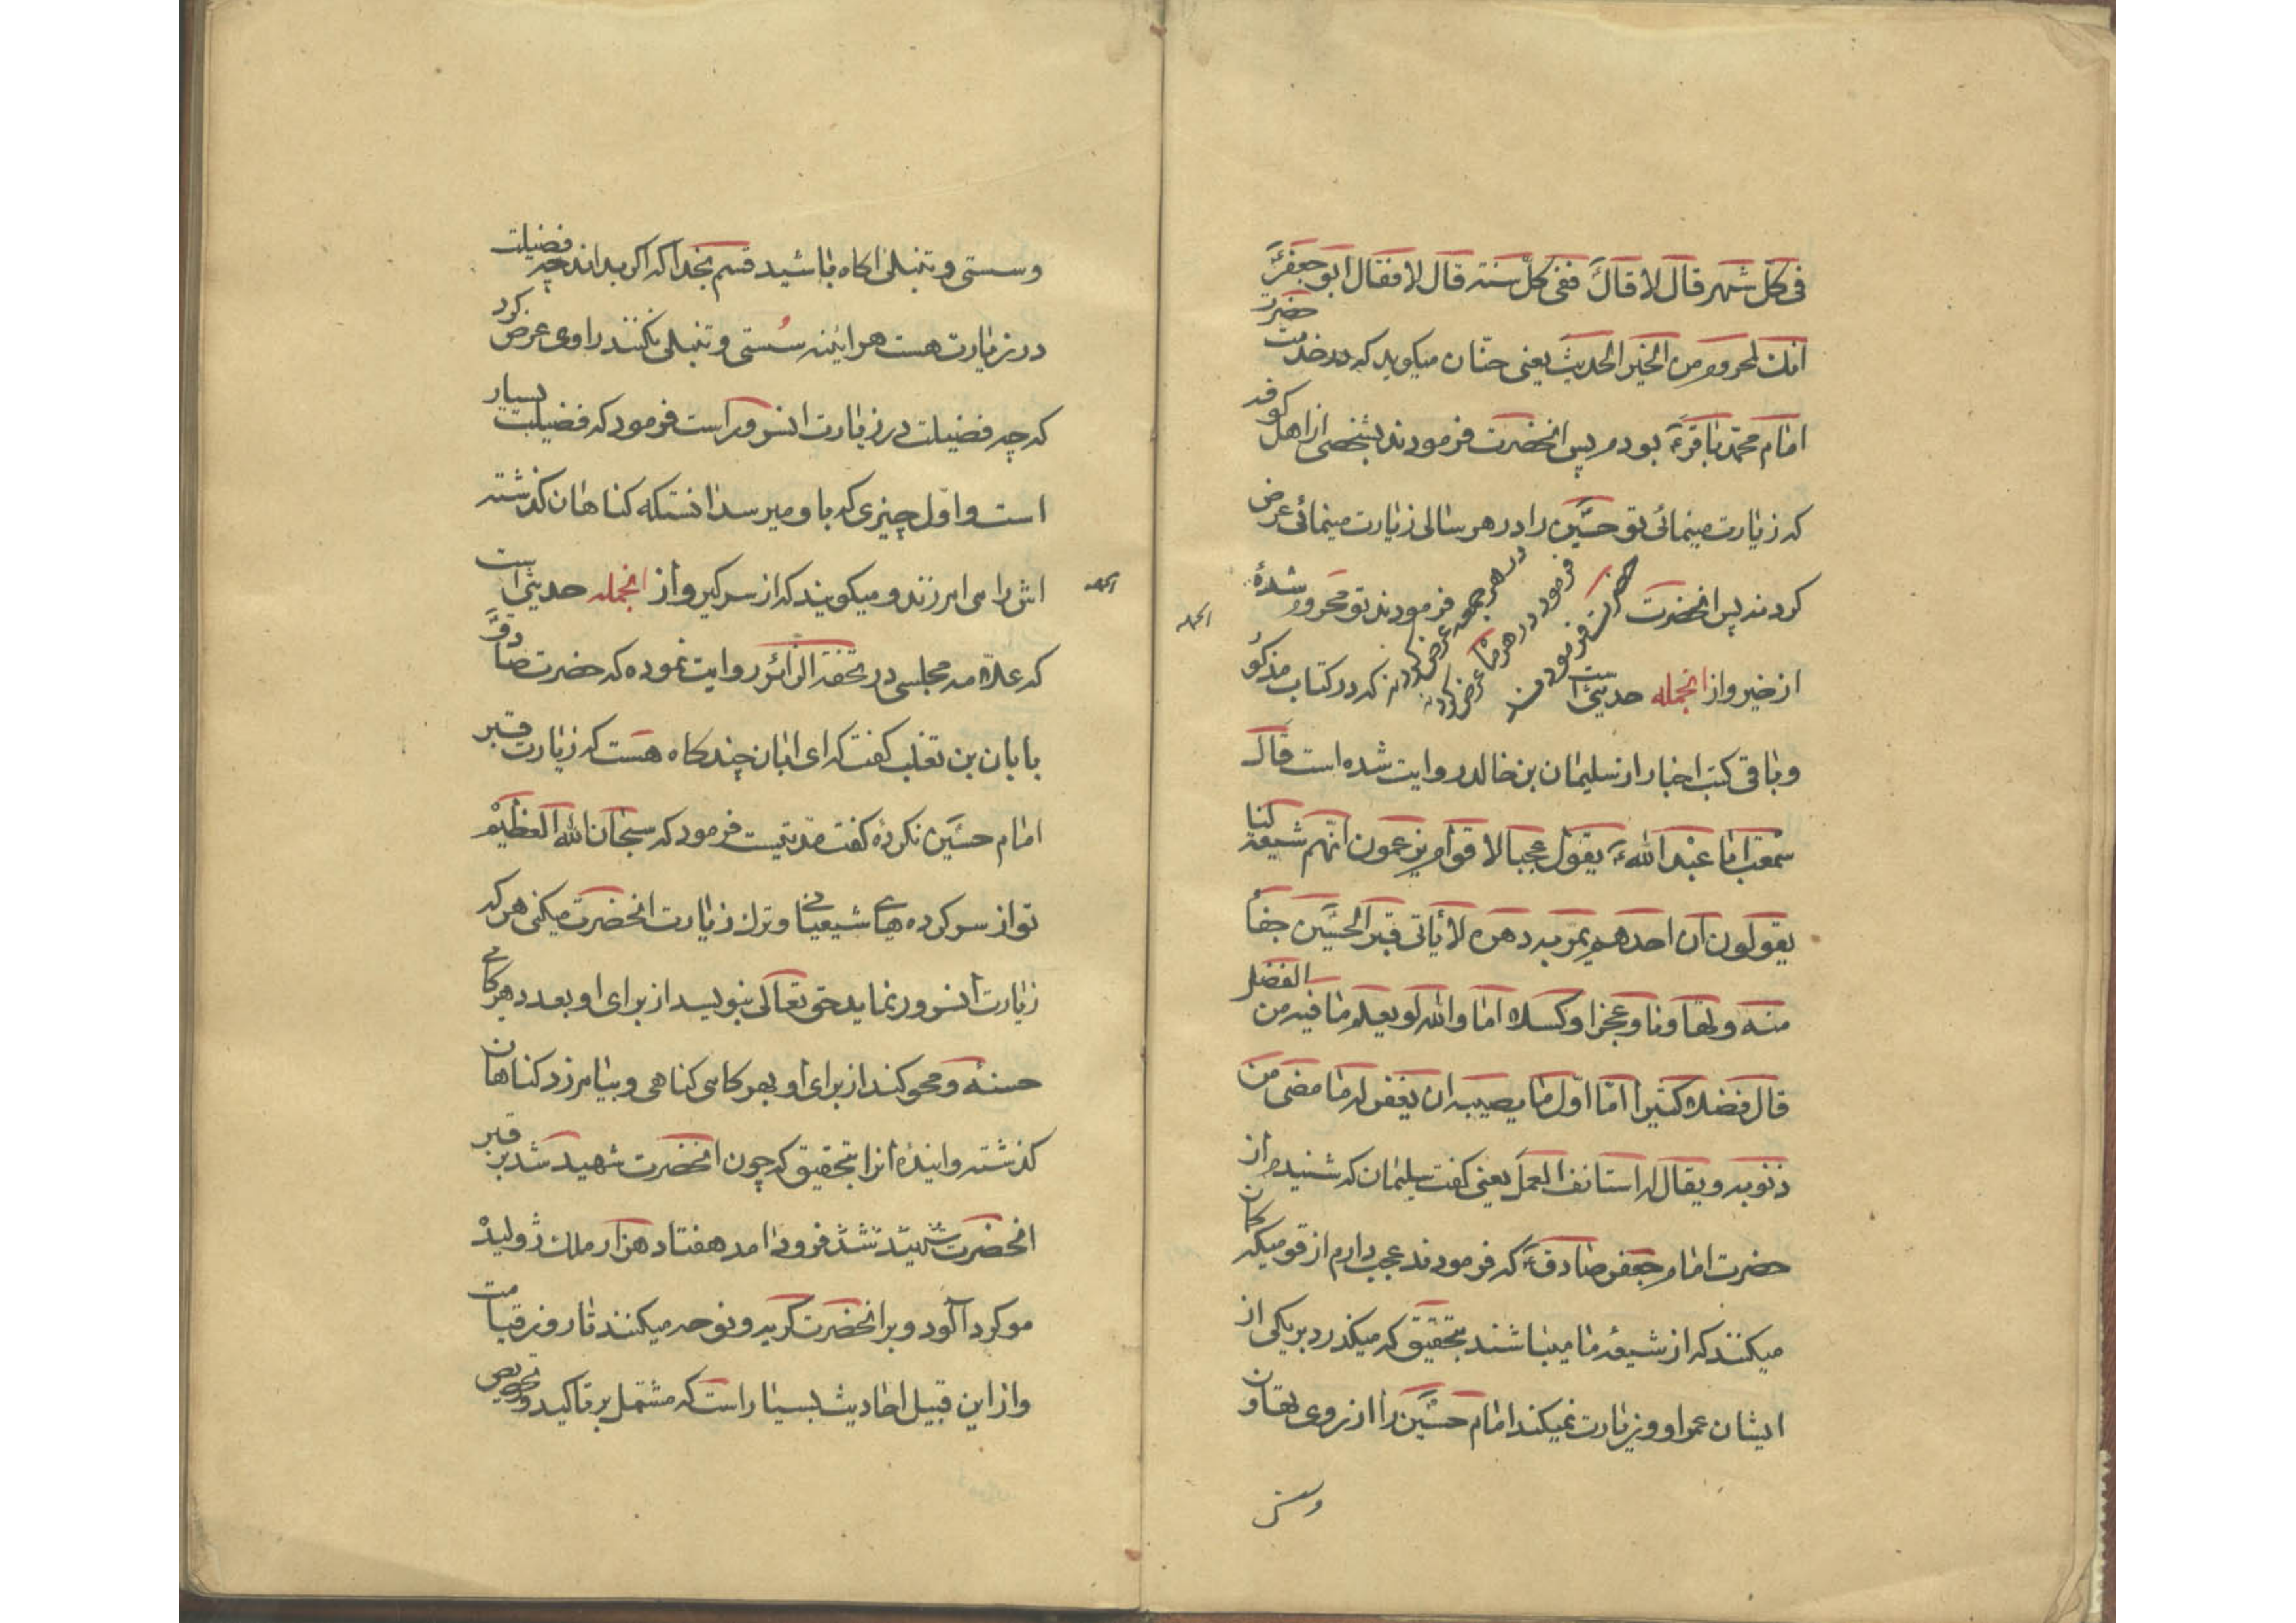 فی کل شهر قال لا قال ففی کل سنة قال لا فقال ابو جعفرؑ
انک لمحروم من الخیر الحدیث یعنی حنّان میکوید که در خدمت حضرت
امام محمد باقرؑ بودم پس انحضرت فرمودند بشخصی از اهل کوفه
که زیارت مینمائی تو حسینؑ را در هر سالی زیارت مینمائی عرض
کردند پس انحضرت فرمودند تو محروم شدهٔ
حضرت فرمود در هر ماه عرض کرد نه
فرمود در هر جمعه عرض کرد نه
از خیر و از انجمله حدیثی است که در کتاب مذکو
و باقی کتب اخبار از سلیمان بن خالد روایت شده است قال
سمعت ابا عبد اللهؑ یقول عجبا لاقوام یزعمون انّهم شیعة لنا
یقولون ان احدهم یمرّ به دهره لا یأتی قبر الحسین جفأ
منه و تهاونا و عجزا و کسلا اما والله لو یعلم ما فیه من الفضل
قال فضلا کثیرا امّا اوّل ما یصیبه ان یغفر له ما مضی من
ذنوبه و یقال له استانف العمل یعنی کفت سلیمان که شنیدم از
حضرت امام جعفر صادقؑ که فرمودند عجب دارم از قومیکه کمان
میکنند که از شیعهٔ ما میباشند بتحقیق که میکذرد بر یکی از
ایشان عمر او و زیارت نمیکند امام حسینؑ را از روی تهاون
وسستی
انجمله
و سستی و تنبلی اکاه باشید قسم بخدا که اکر بداند چه فضیلت
در زیارت هست هراینه سُستی و تنبلی نکنند راوی عرض کرد
که چه فضیلت در زیارت انسرور است فرمود که فضیلت بسیار
است و اوّل چیزی که باو میرسد انستکه کناهان کذشته
اش را می امرزند و میکویند که از سر کیر و از انجمله حدیثی است
که علامه مجلسی در تحفة الزائر روایت نموده که حضرت صادقؑ
بابان بن تغلب کفت که ای ابان چند کاه هست که زیارت قبر
امام حسینؑ نکردهٔ کفت مدتیست فرمود که سبحان الله العظیم
تو از سرکرده های شیعیانی و ترک زیارت انحضرت میکنی هر که
زیارت انسرور نماید حق تعالی بنویسد از برای او بعدد هر کامی
حسنهٔ و محو کند از برای او بهر کامی کناهی و بیامرزد کناهان
کذشته و ایندهٔ انرا بتحقیق که چون انحضرت شهید شد بر قبر
انحضرت فرود امد هفتاد هزار ملک ژولیده
مو کرد آلود و بر انحضرت کریه و نوحه میکنند تا روز قیامت
و از این قبیل احادیث بسیار است که مشتمل بر تاکید و تحریص
انجمله